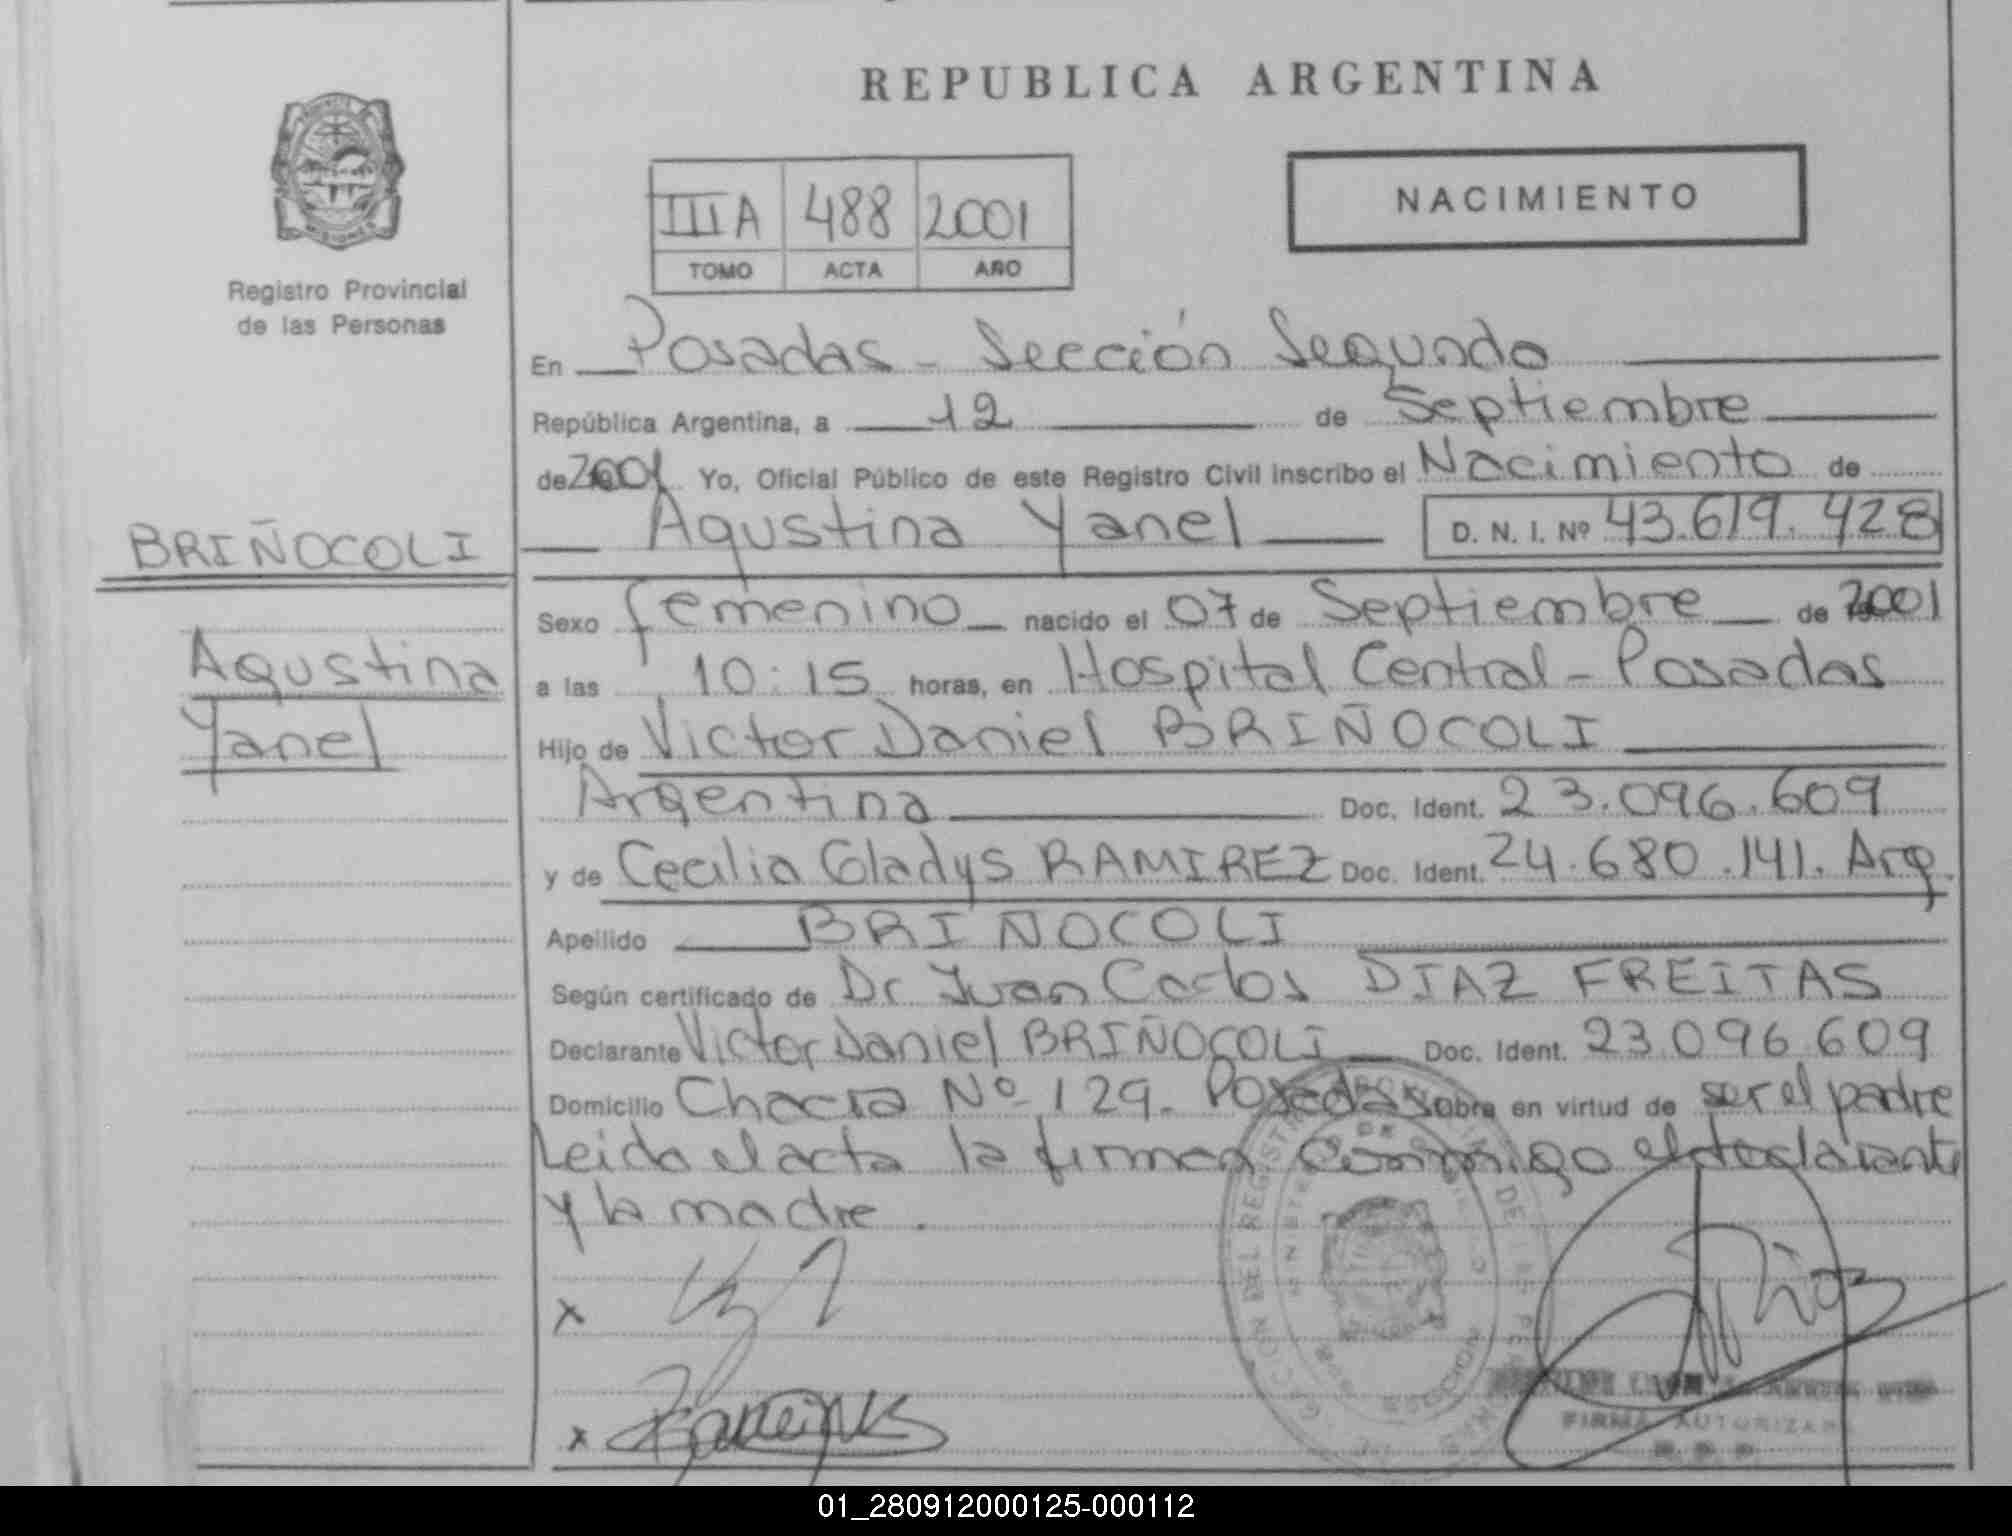 REPUBLICA ARGENTINA
MISIONES
Registro Provincial
de las Personas
IIIA 488 2001
TOMO ACTA AÑO
NACIMIENTO
En Posadas - Sección Segunda
República Argentina, a 12 de Septiembre
de 2001 Yo, Oficial Público de este Registro Civil inscribo el Nacimiento de
Agustina Yanel D. N. I. Nº 43.619.428
BRIÑOCOLI
Agustina
Yanel
Sexo femenino nacido el 07 de Septiembre de 2001
a las 10:15 horas, en Hospital Central - Posadas
Hijo de Victor Daniel BRIÑOCOLI
Argentina Doc. Ident. 23.096.609
y de Cecilia Gladys RAMIREZ Doc. Ident. 24.680.141. Arg.
Apellido BRIÑOCOLI
Según certificado de Dr Juan Carlos DIAZ FREITAS
Declarante Victor Daniel BRIÑOCOLI Doc. Ident. 23.096.609
Domicilio Chacra Nº 129. Posadas obra en virtud de ser el padre
Leida el acta la firman conmigo el declarante
y la madre.
x
x
FIRMA AUTORIZADA
01_280912000125-000112